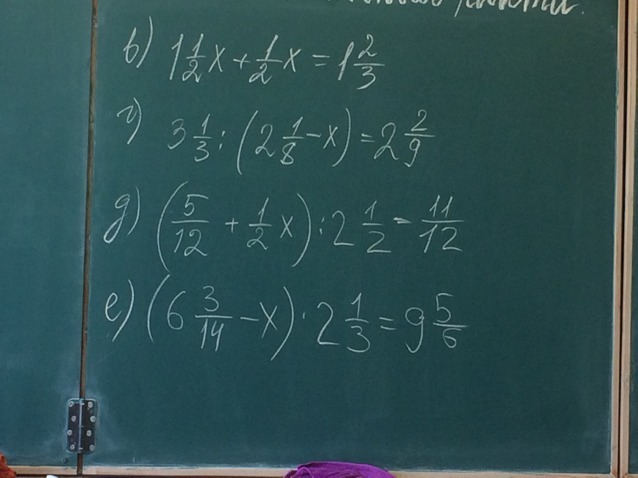 в) 1 1/2 x + 1/2 x = 1 2/3
г) 3 1/3 : (2 1/8 - x) = 2 2/9
д) (5/12 + 1/2 x) : 2 1/2 = 11/12
е) (6 3/14 - x) · 2 1/3 = 9 5/6